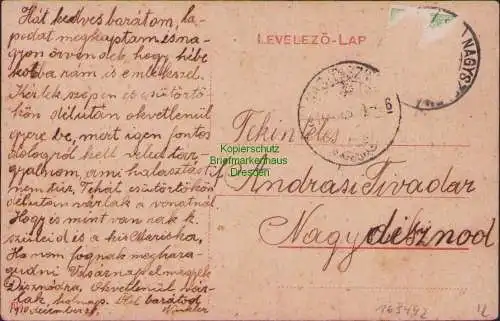 Hát kedves barátom, la-
podat megkaptam és na-
gyon örvendek, hogy hébe
korba rám is emlékezel.
Kérlek szépen és csütörtö-
kön délután okvetlenül
gyere be, mert igen fontos
dologról kell veled tár-
gyalnom, ami halasztást
nem tűr. Tehát csütörtökön
délután várlak a vonatnál
Hogy is mint van nak k.
szüleid és a kis Mariska,
Ha nem fognak meghara-
gudni Vasárnap elmegyek
Disznódra, Okvetlenül vár-
lak, holnap. Ölel barátod
1910 december 28. Winkler
LEVELEZŐ-LAP
NAGYSZ
Kopierschutz
Briefmarkenhaus
Dresden
Tekintetes
Andrasi Tivadar
Nagydisznod
163492
12